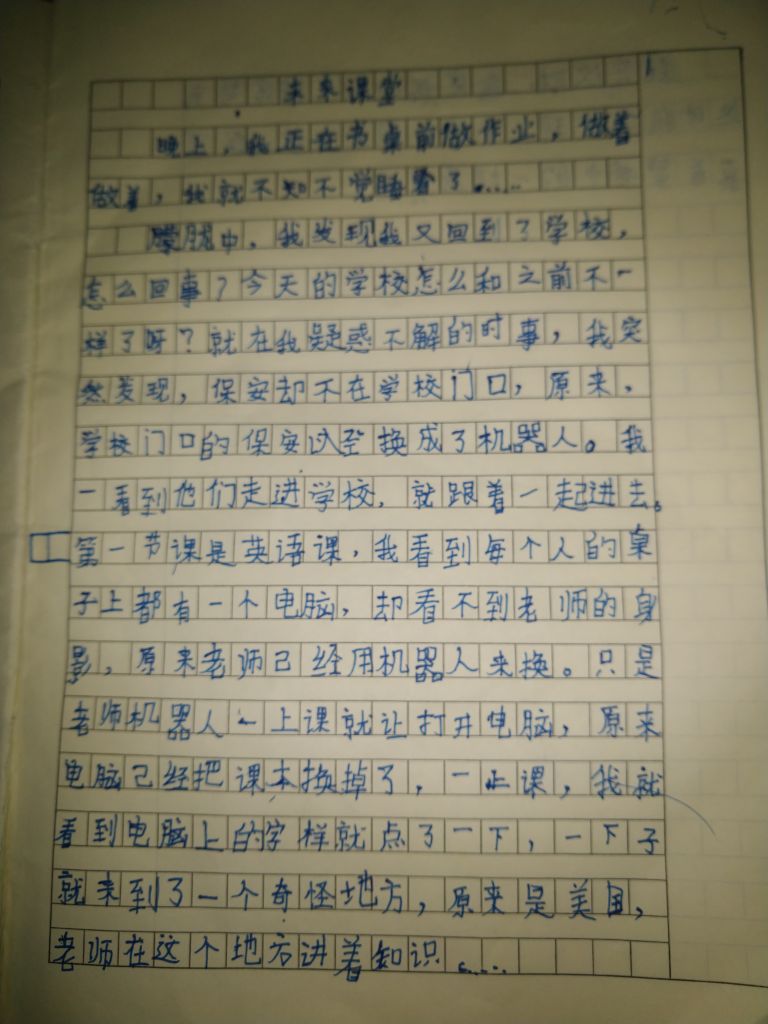 未来课堂
晚上，我正在书桌前做作业，做着
做着，我就不知不觉睡着了.....
朦胧中，我发现我又回到了学校，
怎么回事？今天的学校怎么和之前不一
样了呀？就在我疑惑不解的时事，我突
然发现，保安却不在学校门口，原来，
学校门口的保安以至换成了机器人。我
一看到他们走进学校，就跟着一起进去。
第一节课是英语课，我看到每个人的桌
子上都有一个电脑，却看不到老师的身
影，原来老师己经用机器人来换。只是
老师机器人一上课就让打开电脑，原来
电脑己经把课本换掉了，一上课，我就
看到电脑上的字样就点了一下，一下子
就来到了一个奇怪地方，原来是美国，
老师在这个地方讲着知识.....